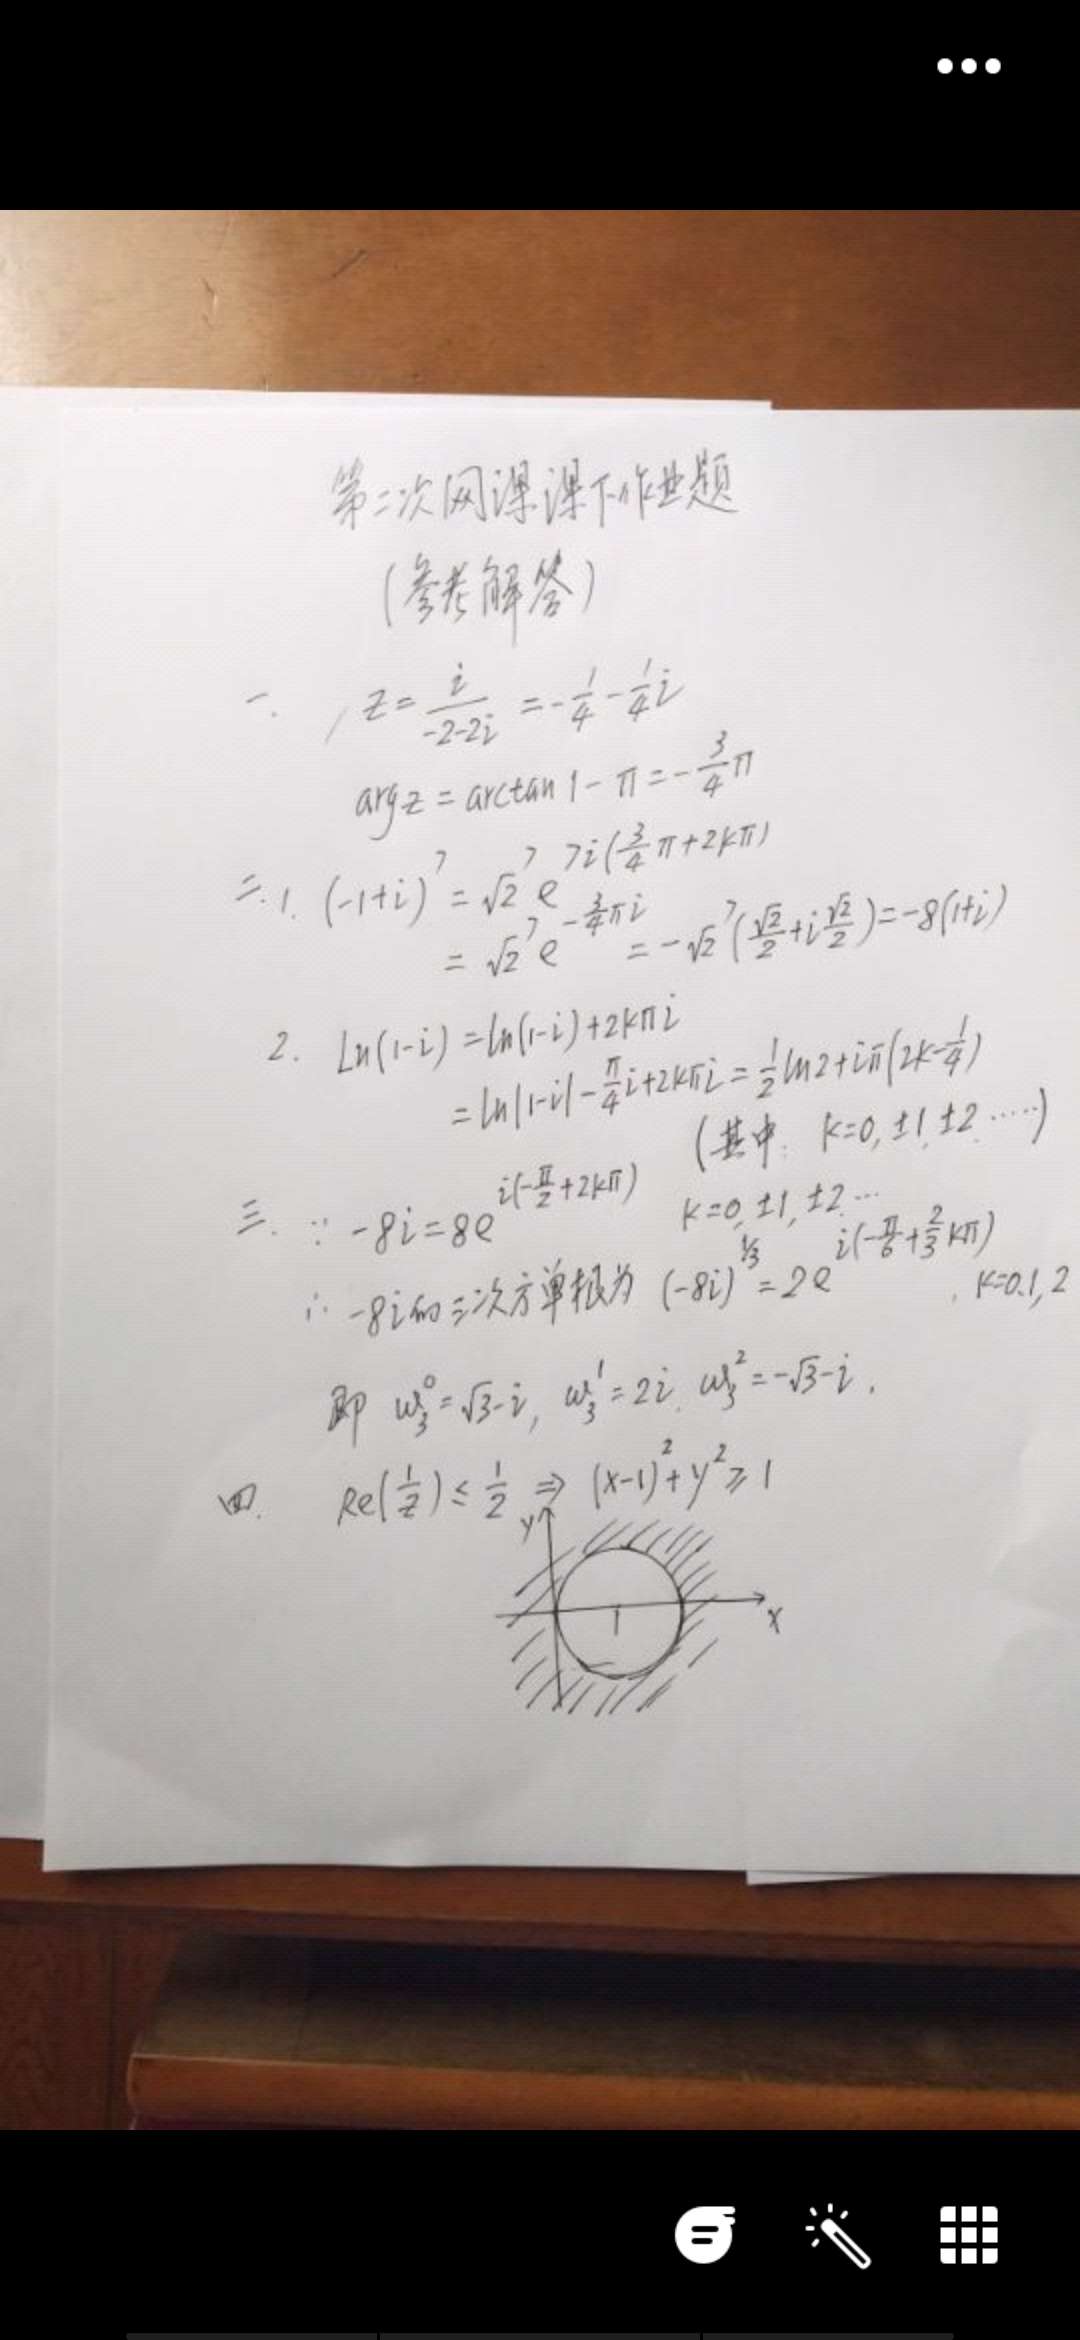 第二次网课课下作业题
(参考解答)
一. z = i/(-2-2i) = -1/4 - 1/4 i
argz = arctan 1 - π = -3/4 π
二.1. (-1+i)^7 = √2^7 e^{7i(3/4 π+2kπ)}
= √2^7 e^{-3/4 πi} = -√2^7 (√2/2 + i √2/2) = -8(1+i)
2. Ln(1-i) = ln(1-i)+2kπi
= ln|1-i| - π/4 i+2kπi = 1/2 ln2+iπ(2k-1/4)
(其中. k=0, ±1, ±2 ·····)
三. ∵ -8i = 8e^{i(-π/2+2kπ)} k=0, ±1, ±2 ···
∴ -8i的三次方单根为 (-8i)^{1/3} = 2e^{i(-π/6+2/3 kπ)}, k=0.1, 2
即 w_3^0 = √3-i, w_3^1 = 2i, w_3^2 = -√3-i.
四. Re(1/z) ≤ 1/2 ⇒ (x-1)^2+y^2 ≥ 1
y
1
x